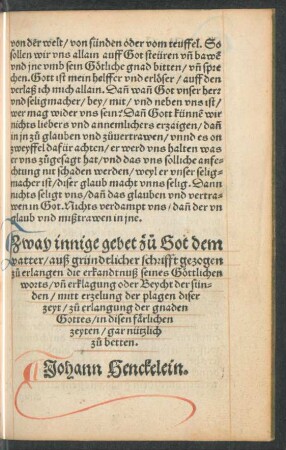 von der welt/ von sünden oder vom teuffel. So
sollen wir vns allain auff Got steüren vñ bawẽ
vnd jne vmb sein Götliche gnad bitten/ vñ spre
chen. Gott ist mein helffer vnd erlöser/ auff den
verlaß ich mich allain. Dañ wañ Got vnser herr
vnd seligmacher/ bey/ mit/ vnd neben vns ist/
wer mag wider vns sein? Dañ Gott künnẽ wir
nichts liebers vnd annemlichers erzaigen/ dañ
in jn zů glauben vnd zůuertrawen/ vnnd es on
zweyffel dafür achten/ er werd vns halten was
er vns zůgesagt hat/ vnd das vns solliche anfe-
chtung nit schaden werden/ weyl er vnser selig-
macher ist/ diser glaub macht vnns selig. Dann
nichts seligt vns/ dañ das glauben vnd vertra-
wen in Got. Nichts verdampt vns/ dañ der vn
glaub vnd mißtrawen in jne.
Zway innige gebet zů Got dem
vatter/ auß gründtlicher schrifft gezogen
zů erlangen die erkandtnuß seines Göttlichen
worts/ vñ erklagung oder Beycht der sün-
den/ mitt erzelung der plagen diser
zeyt/ zů erlangung der gnaden
Gottes/ in disen färlichen
zeyten/ gar nützlich
zů betten.
Johann Henckelein.